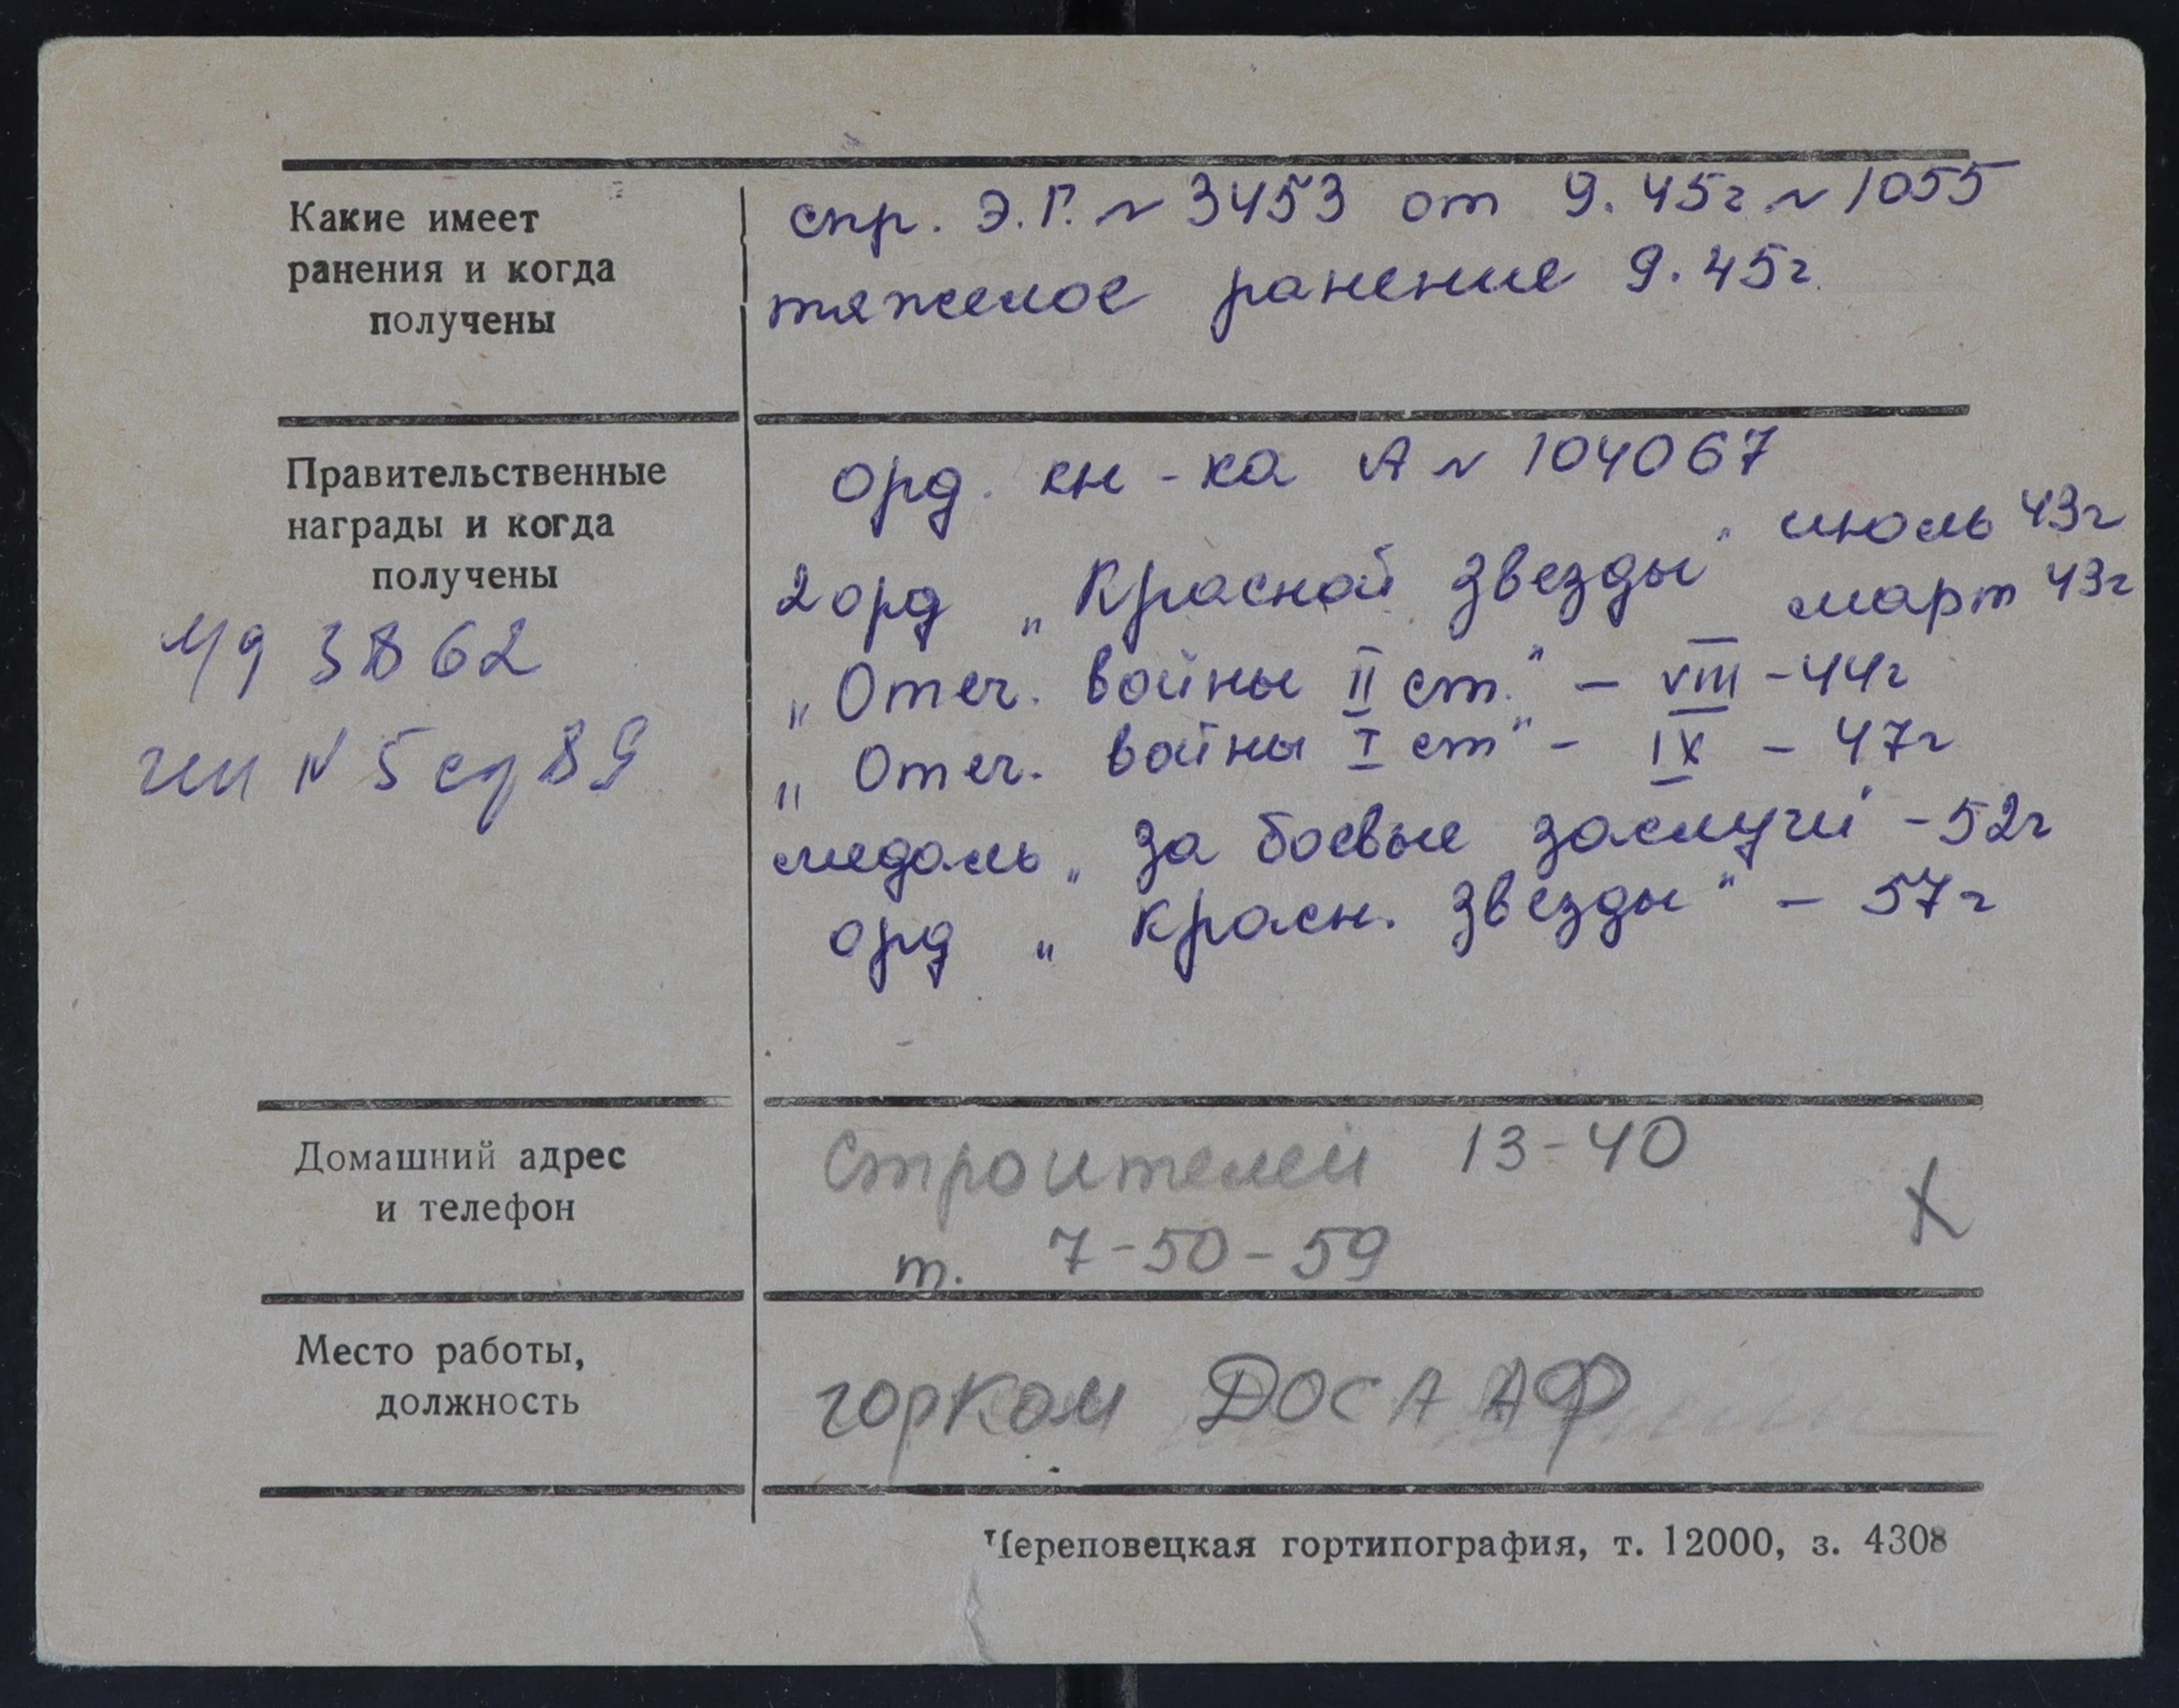 Какие имеет
ранения и когда
получены
спр. Э.Г. № 3453 от 9.45г № 1055
тяжелое ранение 9.45г
Правительственные
награды и когда
получены
3862
N 5
орд. кн-ка А № 104067
2 орд „Красной Звезды" июль 43г
март 43г
„Отеч. войны II ст." – VIII – 44г
„Отеч. войны I ст" – IX – 47г
медаль „За боевые заслуги" – 52г
орд „Красн. Звезды" – 57г
Домашний адрес
и телефон
Строителей 13-40
т. 7-50-59
X
Место работы,
должность
горком ДОСААФ
Череповецкая гортипография, т. 12000, з. 4308